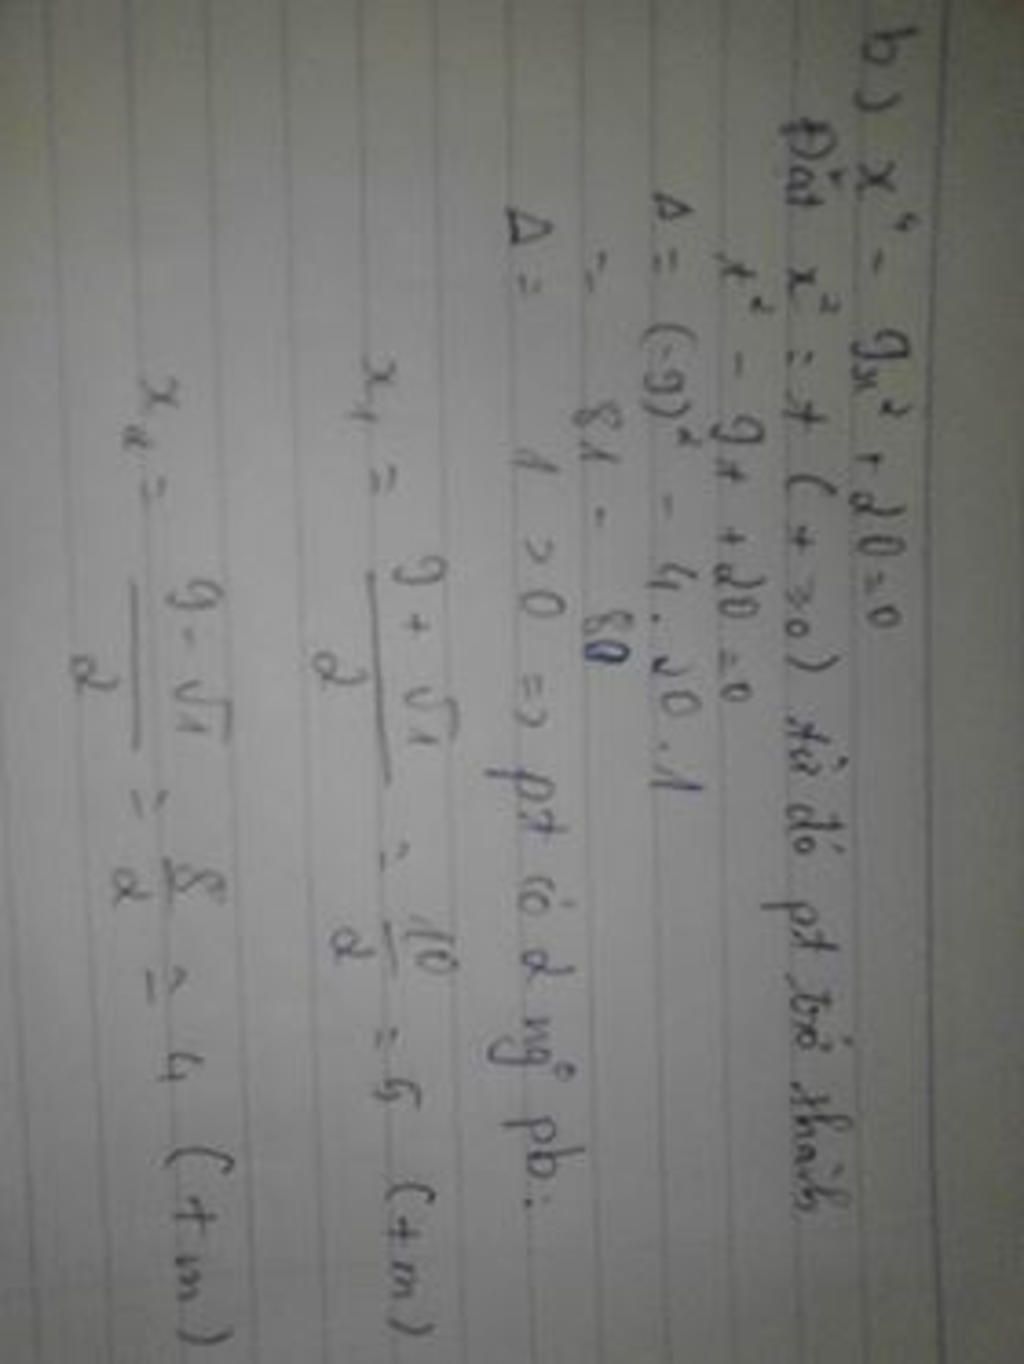 b) x⁴ - 9x² + 20 = 0
Đặt x² = t (t ≥ 0) từ đó pt trở thành
t² - 9t + 20 = 0
Δ = (-9)² - 4.20.1
= 81 - 80
Δ = 1 > 0 => pt có 2 ngº pb:
x₁ = (9 + √1)/2 = 10/2 = 5 (tm)
x₂ = (9 - √1)/2 = 8/2 = 4 (tm)